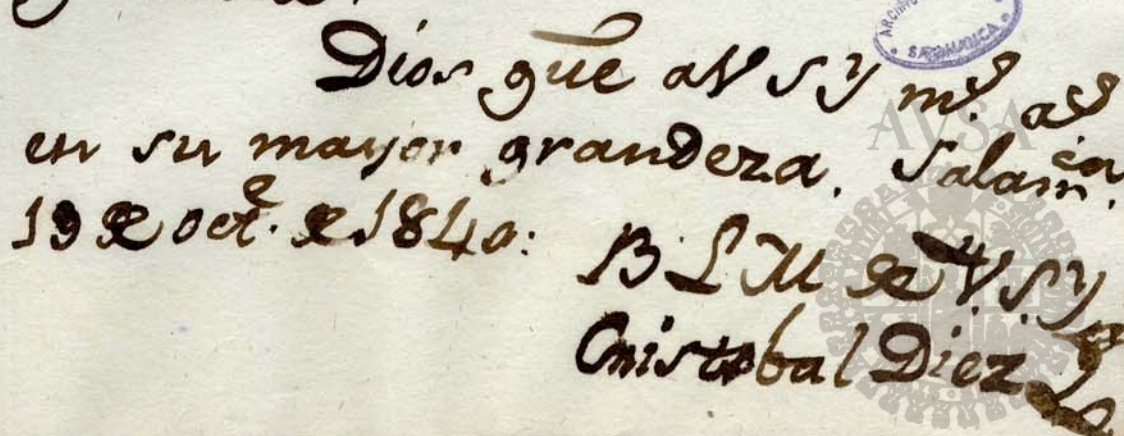 Dios gue a V S Y m.s a.s
en su mayor grandeza. Salam.ca
19 de oct.e de 1840:
B L M de V. S. Y
Cristobal Diez
ARCHIVO
SALAMANCA
AVSA